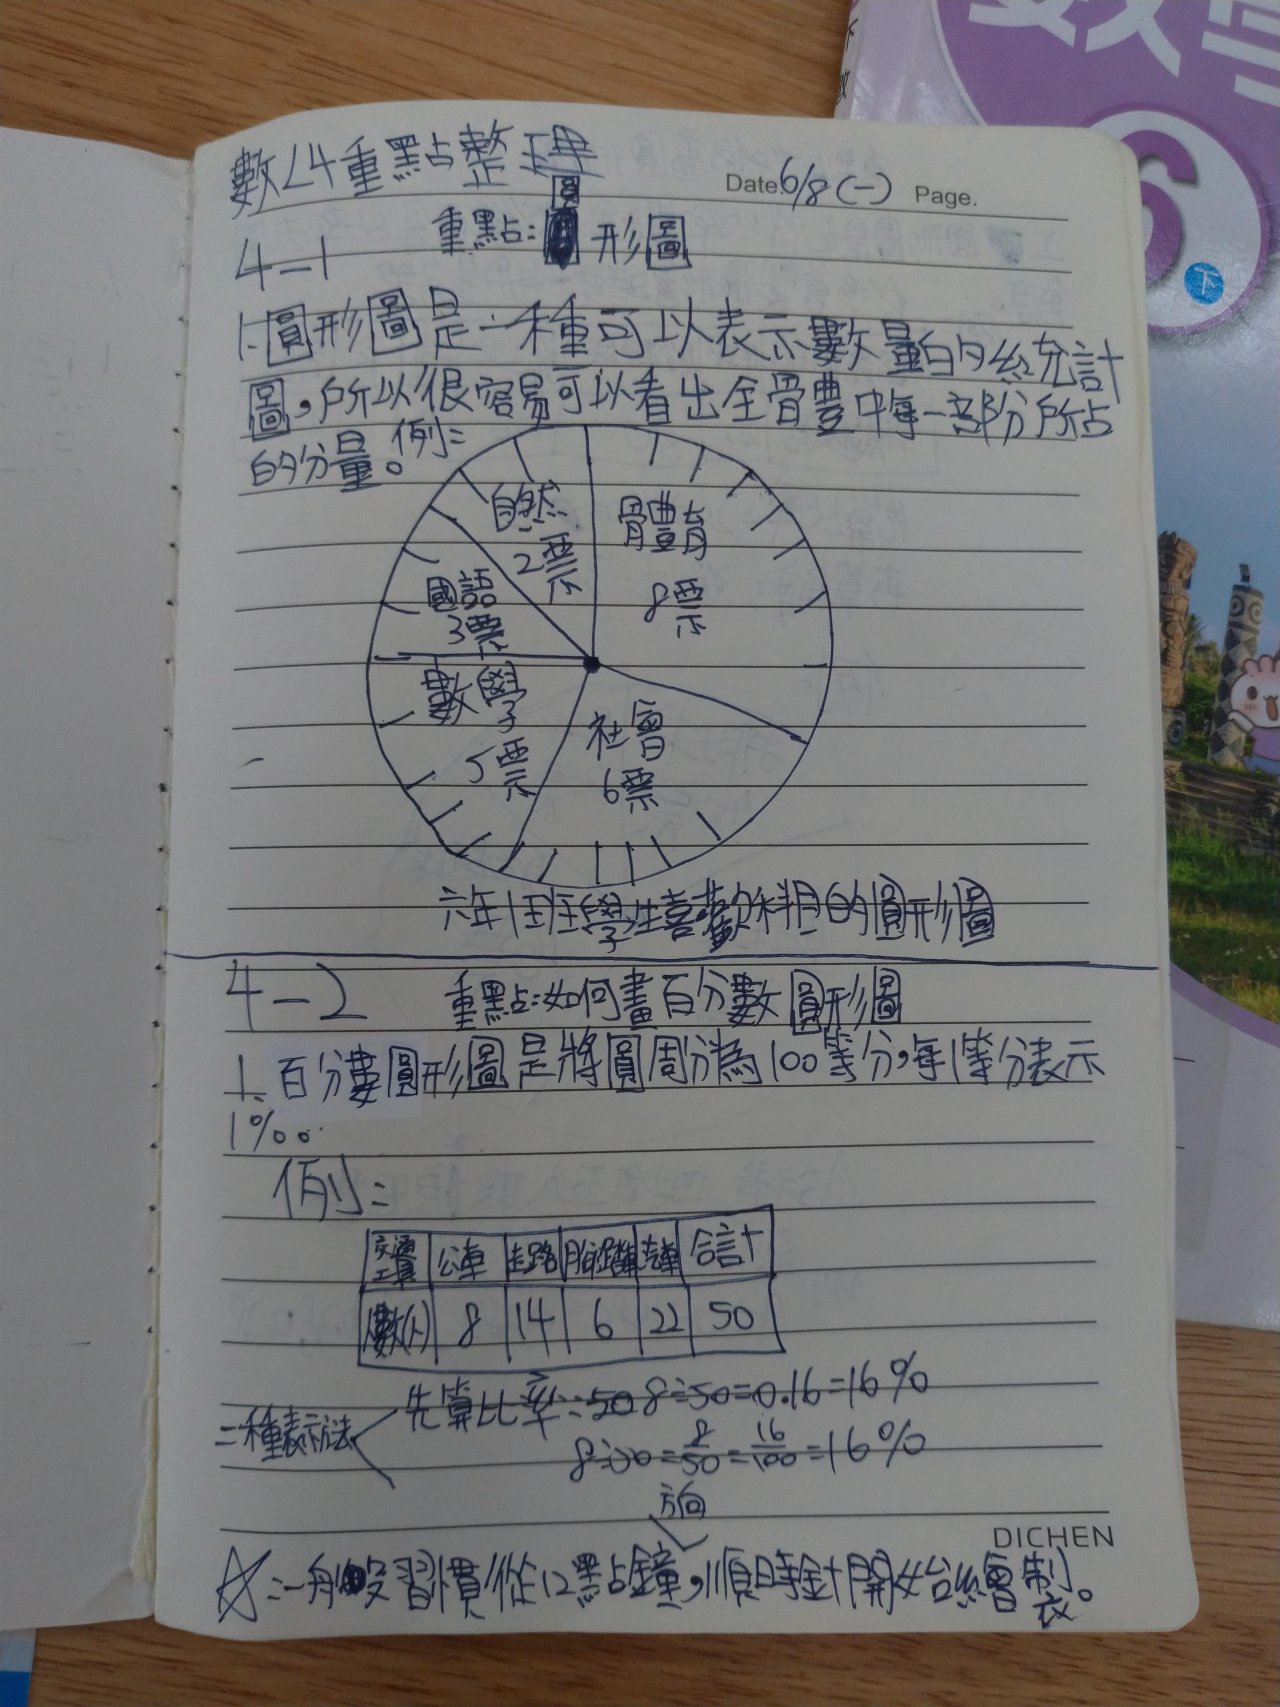 數學
6
下
數L4重點整理
Date.6/8(一) Page.
4-1
重點:圓形圖
1.圓形圖是一種可以表示數量的統計
圖,所以很容易可以看出全體中每一部份所占
的分量。例:
自然
2票
體育
8票
國語
3票
數學
5票
社會
6票
六年1班學生喜歡科目的圓形圖
4-2
重點:如何畫百分數圓形圖
1.百分數圓形圖是將圓周分為100等分,每1等分表示
1%。
例:
交通工具 公車 走路 汽車 合計
人數(人) 8 14 6 22 50
二種表示法
先算比率:50 8÷50=0.16=16%
8÷50=8/50=16/100=16%
方向
DICHEN
☆:一般習慣從12點鐘,順時針開始繪製。